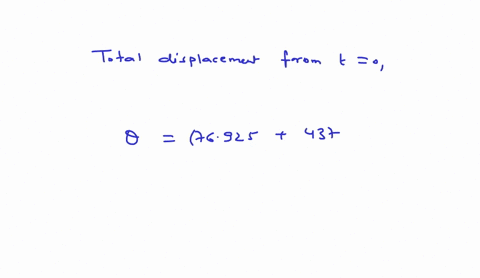 Total displacement from t = 0,
θ = (76.925 + 437